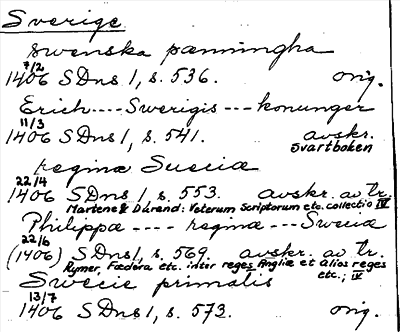 Sverige
swenska pænningha
7/2
1406 SDns 1, s. 536. orig.
Erich----Swerigis---konunger
11/3
1406 SDns 1, s. 541. avskr.
svartboken
regina Suecia
22/4
1406 SDns 1 s. 553. avskr. av tr.
Martene & Durand: Veterum Scriptorum etc. collectio IV
Philippæ ---- reginæ --- Sweciæ
22/6
(1406) SDns 1, s. 569. avskr. av tr.
Rymer, Fœdera etc. inter reges Angliæ et alios reges
etc., IV
Swecie primatis
13/7
1406 SDns 1, s. 573. orig.